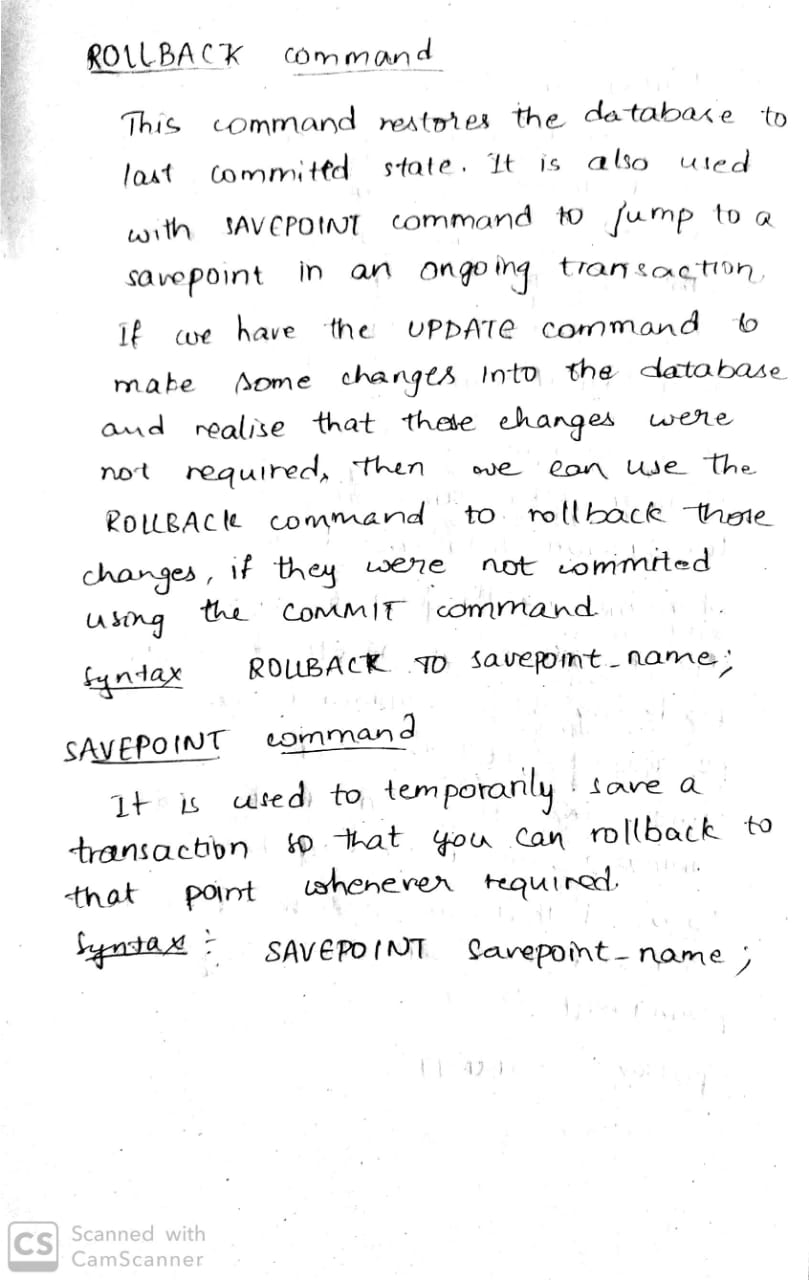 ROLLBACK command
This command restores the database to
last committd state. It is also used
with SAVEPOINT command to jump to a
savepoint in an ongoing transaction.
If we have the UPDATE command to
make some changes into the database
and realise that these changes were
not required, then we can use the
ROLLBACK command to rollback those
changes, if they were not commited
using the COMMIT command.
Syntax ROLLBACK TO savepoint_name;
SAVEPOINT command
It is used to temporarily save a
transaction so that you can rollback to
that point whenever required.
Syntax : SAVEPOINT Savepoint_name;
CS Scanned with
CamScanner